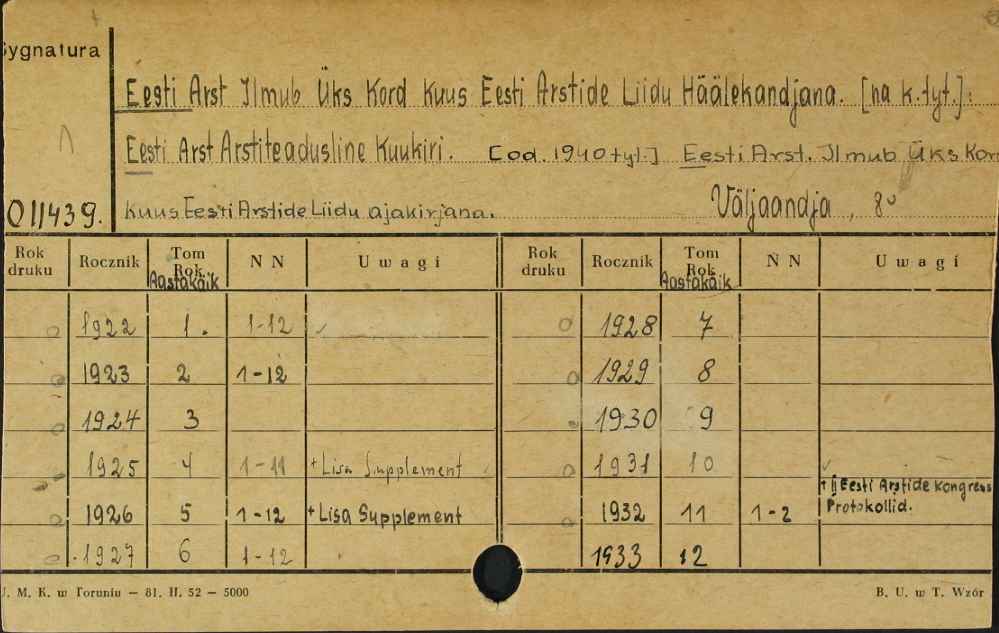 Sygnatura
Eesti Arst Ilmub Üks Kord Kuus Eesti Arstide Liidu Häälekandjana. [na k.tyt.]:
Eesti Arst Arstiteadusline Kuukiri. [od. 1940 tyt.] Eesti Arst. Ilmub Üks Kor
011439. Kuus Eesti Arstide Liidu ajakirjana. Väljaandja, 8º
Rok druku Rocznik Tom Rok Aastakäik NN Uwagi Rok druku Rocznik Tom Rok Aastakäik NN Uwagi
1922 1. 1-12 1928 7
1923 2 1-12 1929 8
1924 3 1930 9
1925 4 1-11 + Lisa Supplement 1931 10
1926 5 1-12 + Lisa Supplement 1932 11 1-2 + II Eesti Arstide Kongress Protokollid.
1927 6 1-12 1933 12
U. M. K. w Toruniu — 81. II. 52 — 5000 B. U. w T. Wzór